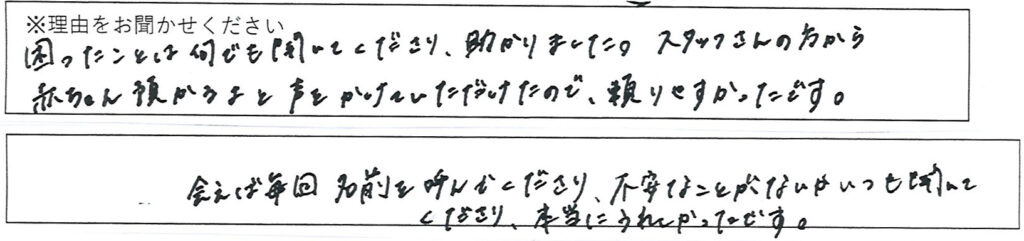 ※理由をお聞かせください
困ったことは何でも聞いてくださり、助かりました。スタッフさんの方から
赤ちゃん預かるよと声をかけていただけたので、頼りやすかったです。
会えば毎回名前を呼んでくださり、不安なことがないかいつも聞いて
くださり、本当にうれしかったです。